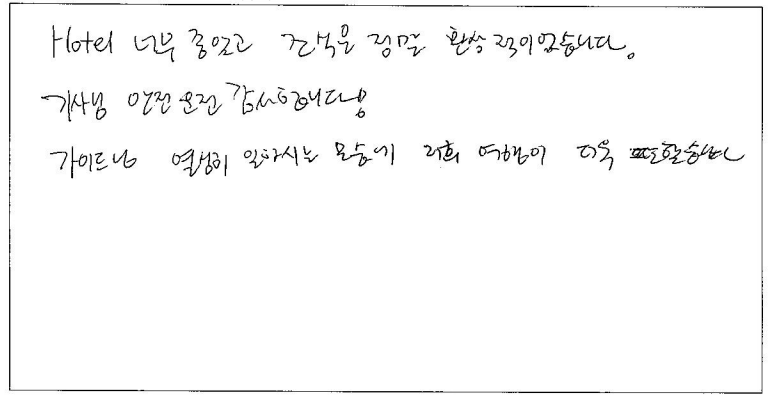 Hotel 너무 좋았고 조식은 정말 환상적이었습니다.
기사님 안전운전 감사합니다
가이드님 열심히 일하시는 모습에 저희 여행이 더욱